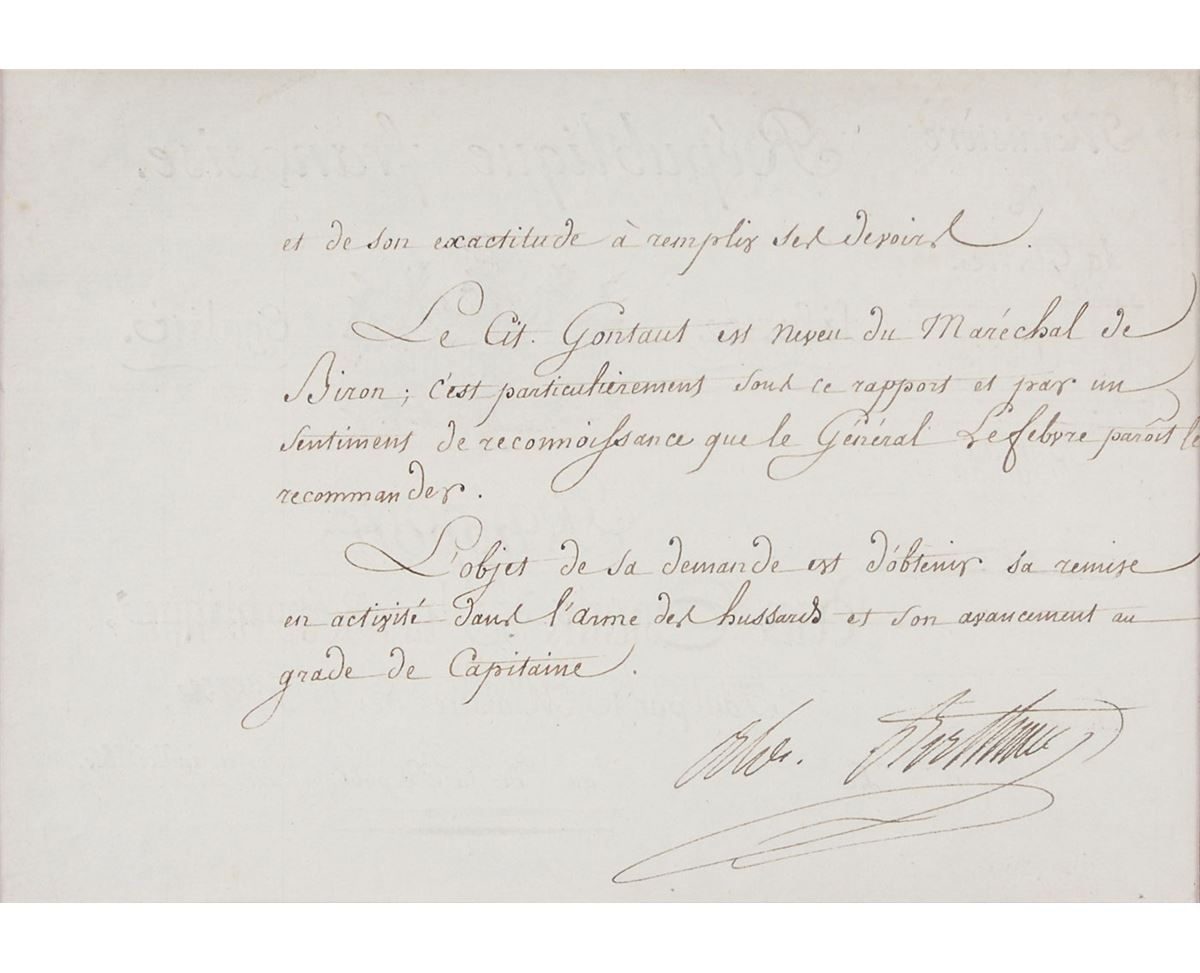 et de son exactitude à remplir ses devoirs.
Le Cit. Gontaut est neveu du Maréchal de
Biron; c'est particulièrement sous ce rapport et par un
sentiment de reconnoissance que le Général Lefebvre paroît le
recommander.
L'objet de sa demande est d'obtenir sa remise
en activité dans l'arme des hussards et son avancement au
grade de Capitaine.
Alex. Berthier
République française.